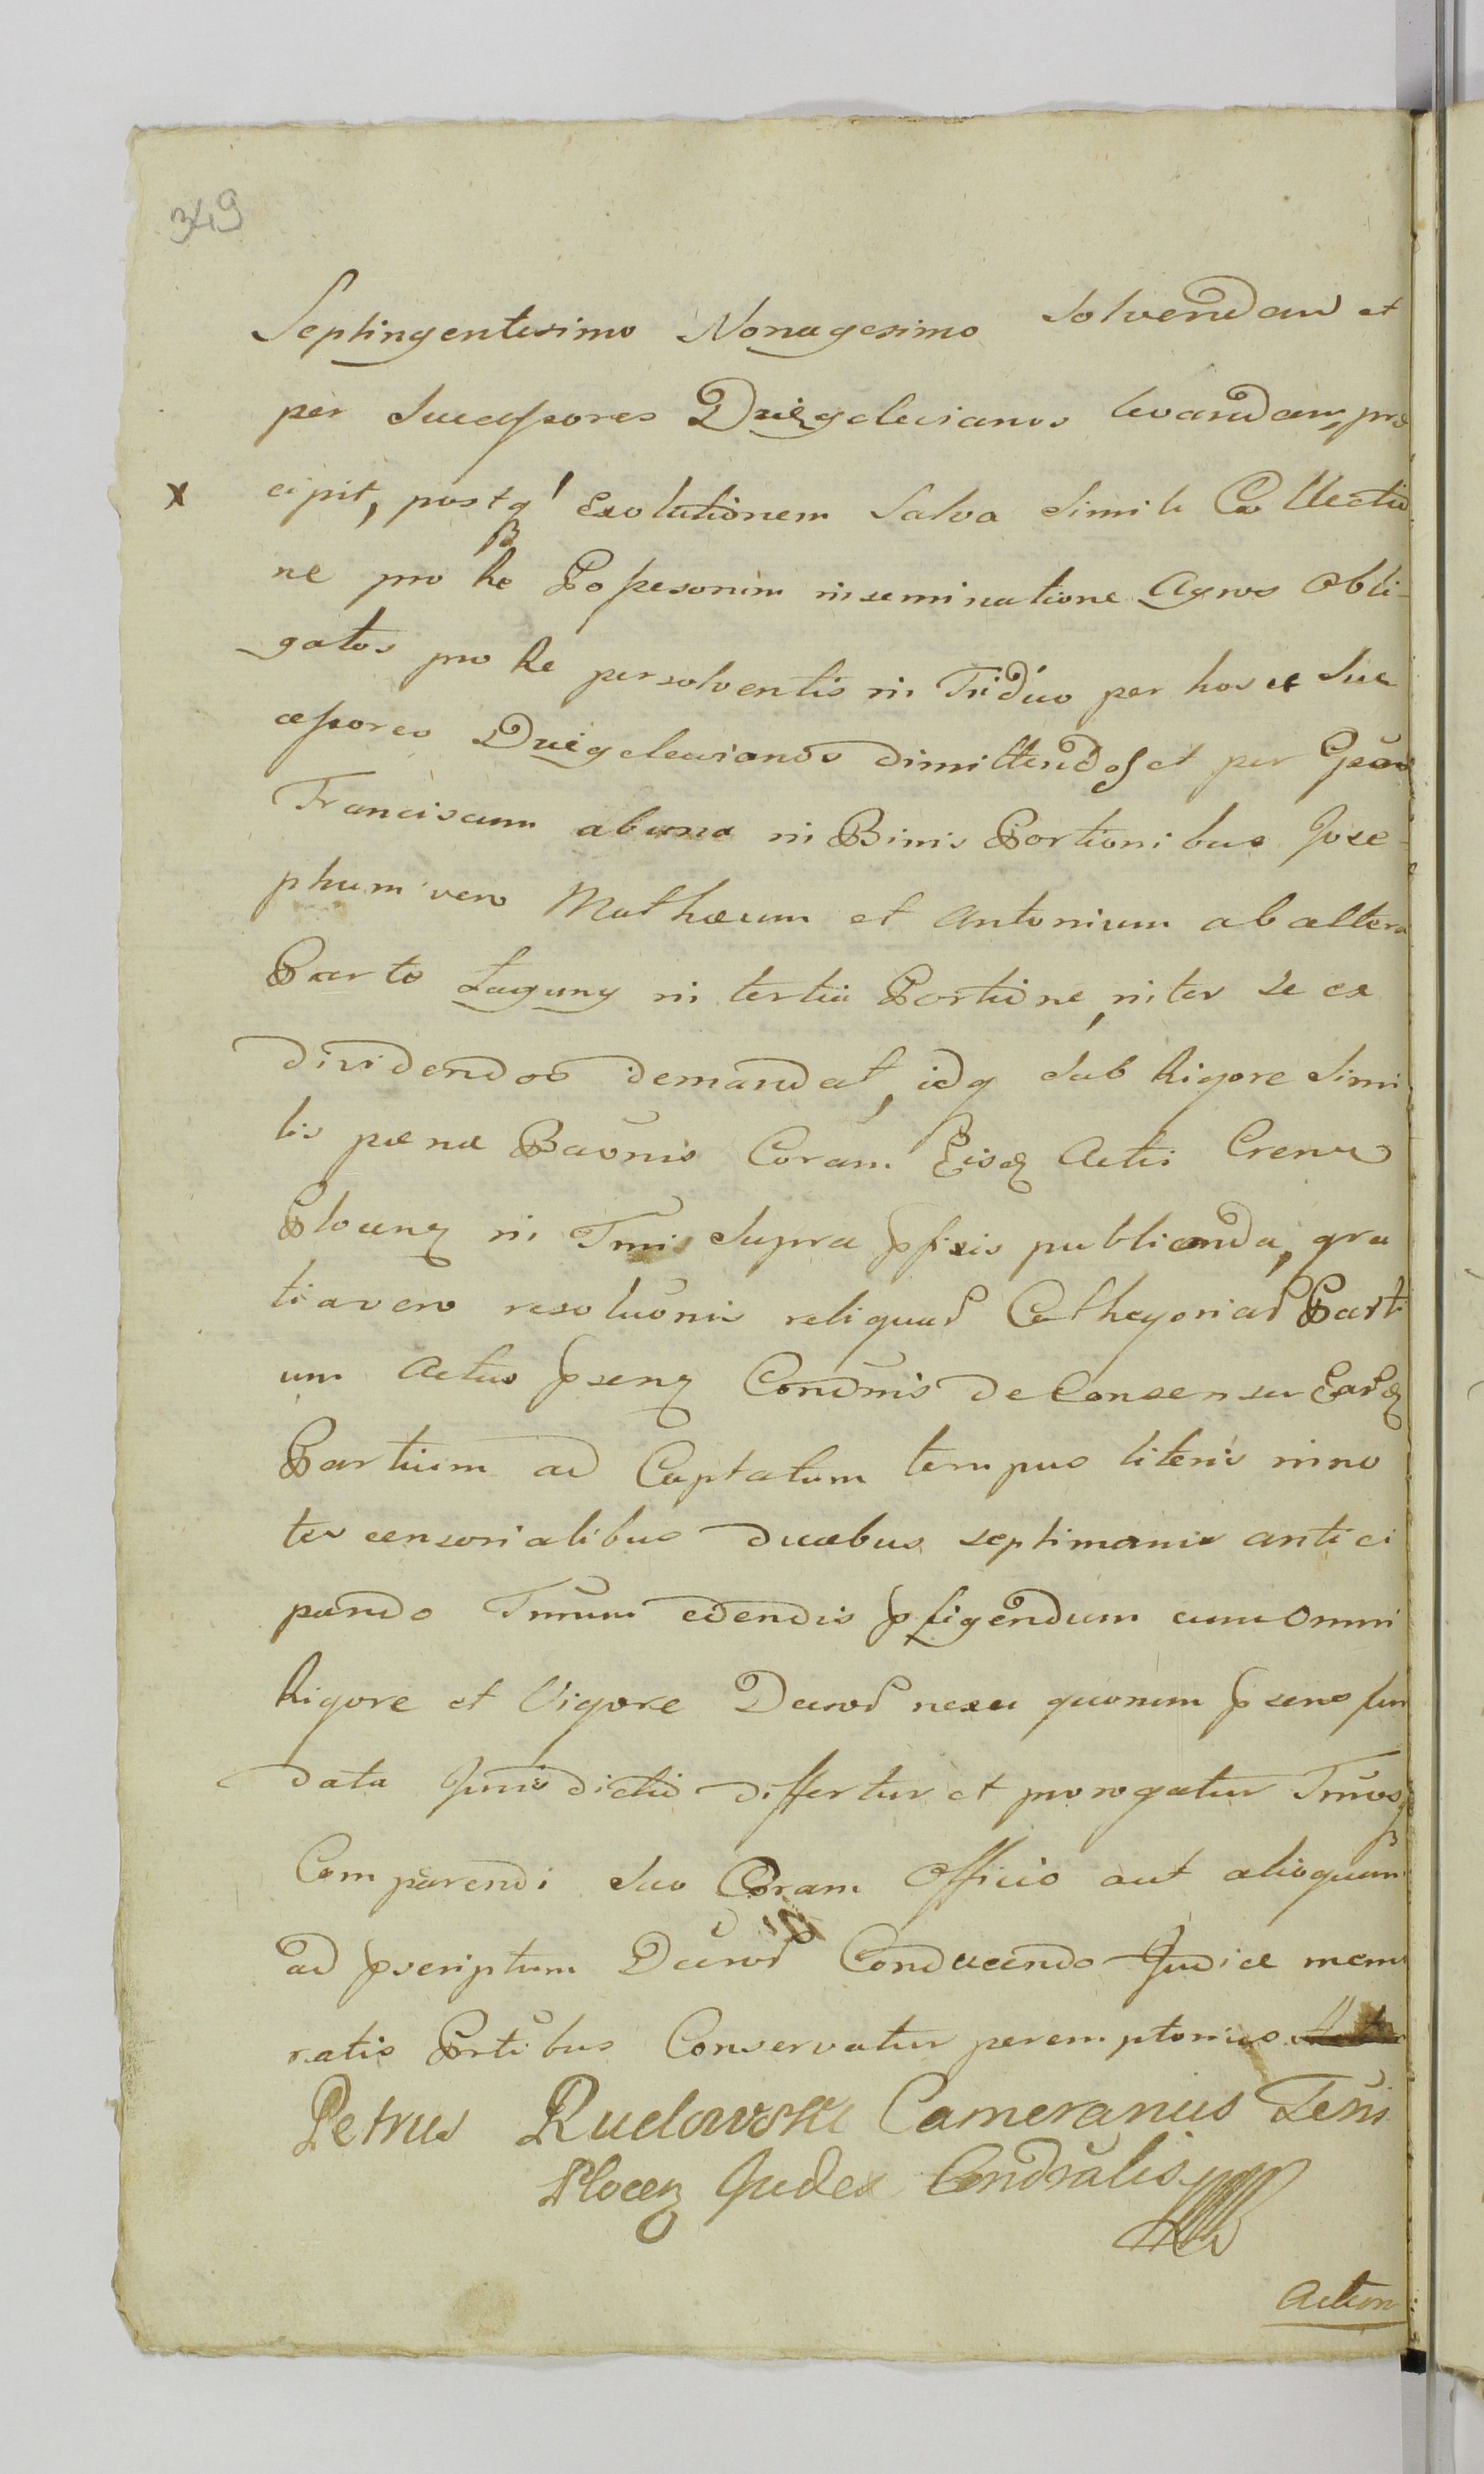 349
Septingentesimo Nonagesimo Solvendam et
per Successores Dzięgelevianos levandam, prae
x cipit, postq' Exolutionem Salva Simili Collectio
ne pro Re Possessorum inseminatione Agros Obli-
gatos pro Re persolventis in Triduo per hos ce Suc
cessores Dzięgelevianos dimittendos et per Gsum
Franciscum ab una in Binis Portionibus Jose-
phum vero Mathaeum et Antonium ab altera
Parte Łaguny in tertia Portione, inter se ex
dividendos demandat, idq Sub Rigore Simi
lis paenae Bannis Coram Eisd Actis Crena
Plocen in Tmis Supra pfixis publicanda, gra
tia vero resolutionis reliquar Cathegoriar Parti
um Actus psens Condnis de Consensu Eard
Partium ad Captatum tempus literis inno
tescensorialibus duabus septimanis antici
pando Tmum edendis pfigendum cum Omni
Rigore et Vigore Decror nexu quorum psens fun
data Jurisdictio differtur et prorogatur Tmusq
Comparendi Suo Coram Officio aut alioquin
ad pscriptum Decror Conducendo Judice memo
ratis Prtibus Conservatur peremptorius
Petrus Rudowski Cameranus Teris
Plocen Judex Condralis mpp
Action